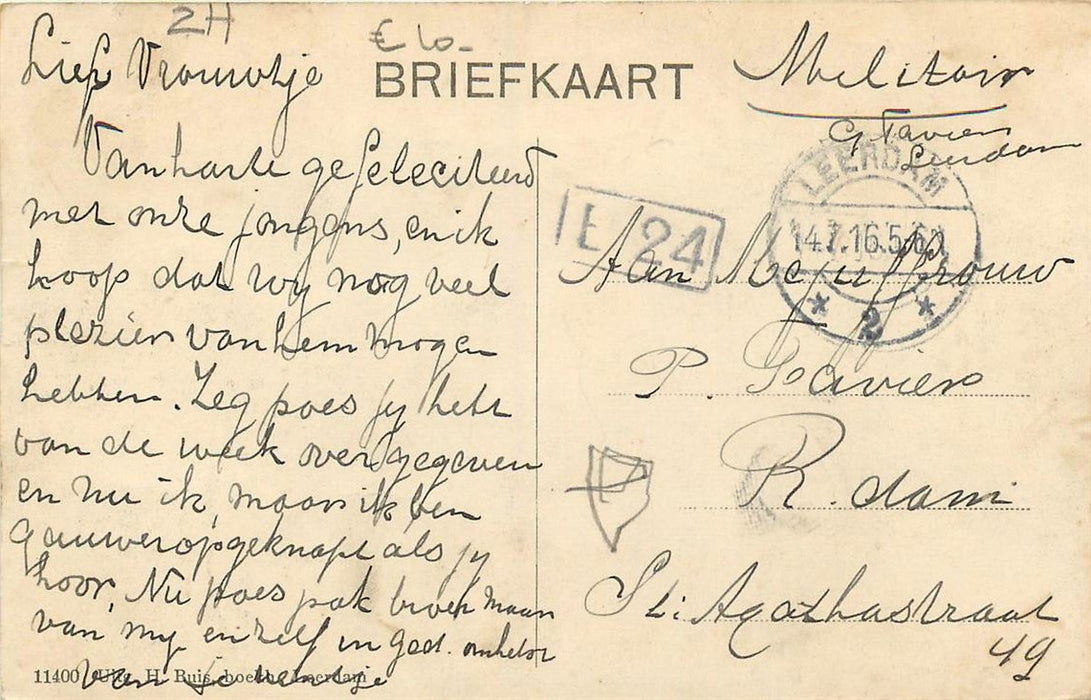 2H
€ 10-
BRIEFKAART
Lief Vrouwtje
Van harte gefeleciteerd
met onze jongens, en ik
hoop dat wy nog veel
plezier van hem mogen
hebben. Zeg poes jy hebt
van de week overgegeven
en nu ik, maar ik ben
gauwer opgeknapt als jy
hoor, Nu poes pak
van my en zelf in ged. omhelst
van je ventje
11400 Uitg. H. Ruis, boekh. Leerdam
Militair
G Taviers
Leerdam
LEERDAM
14.7.16.5-6N
* 2 *
E 24
Aan Mejuffrouw
P. Faviers
R.dam
St: Agathastraat
49